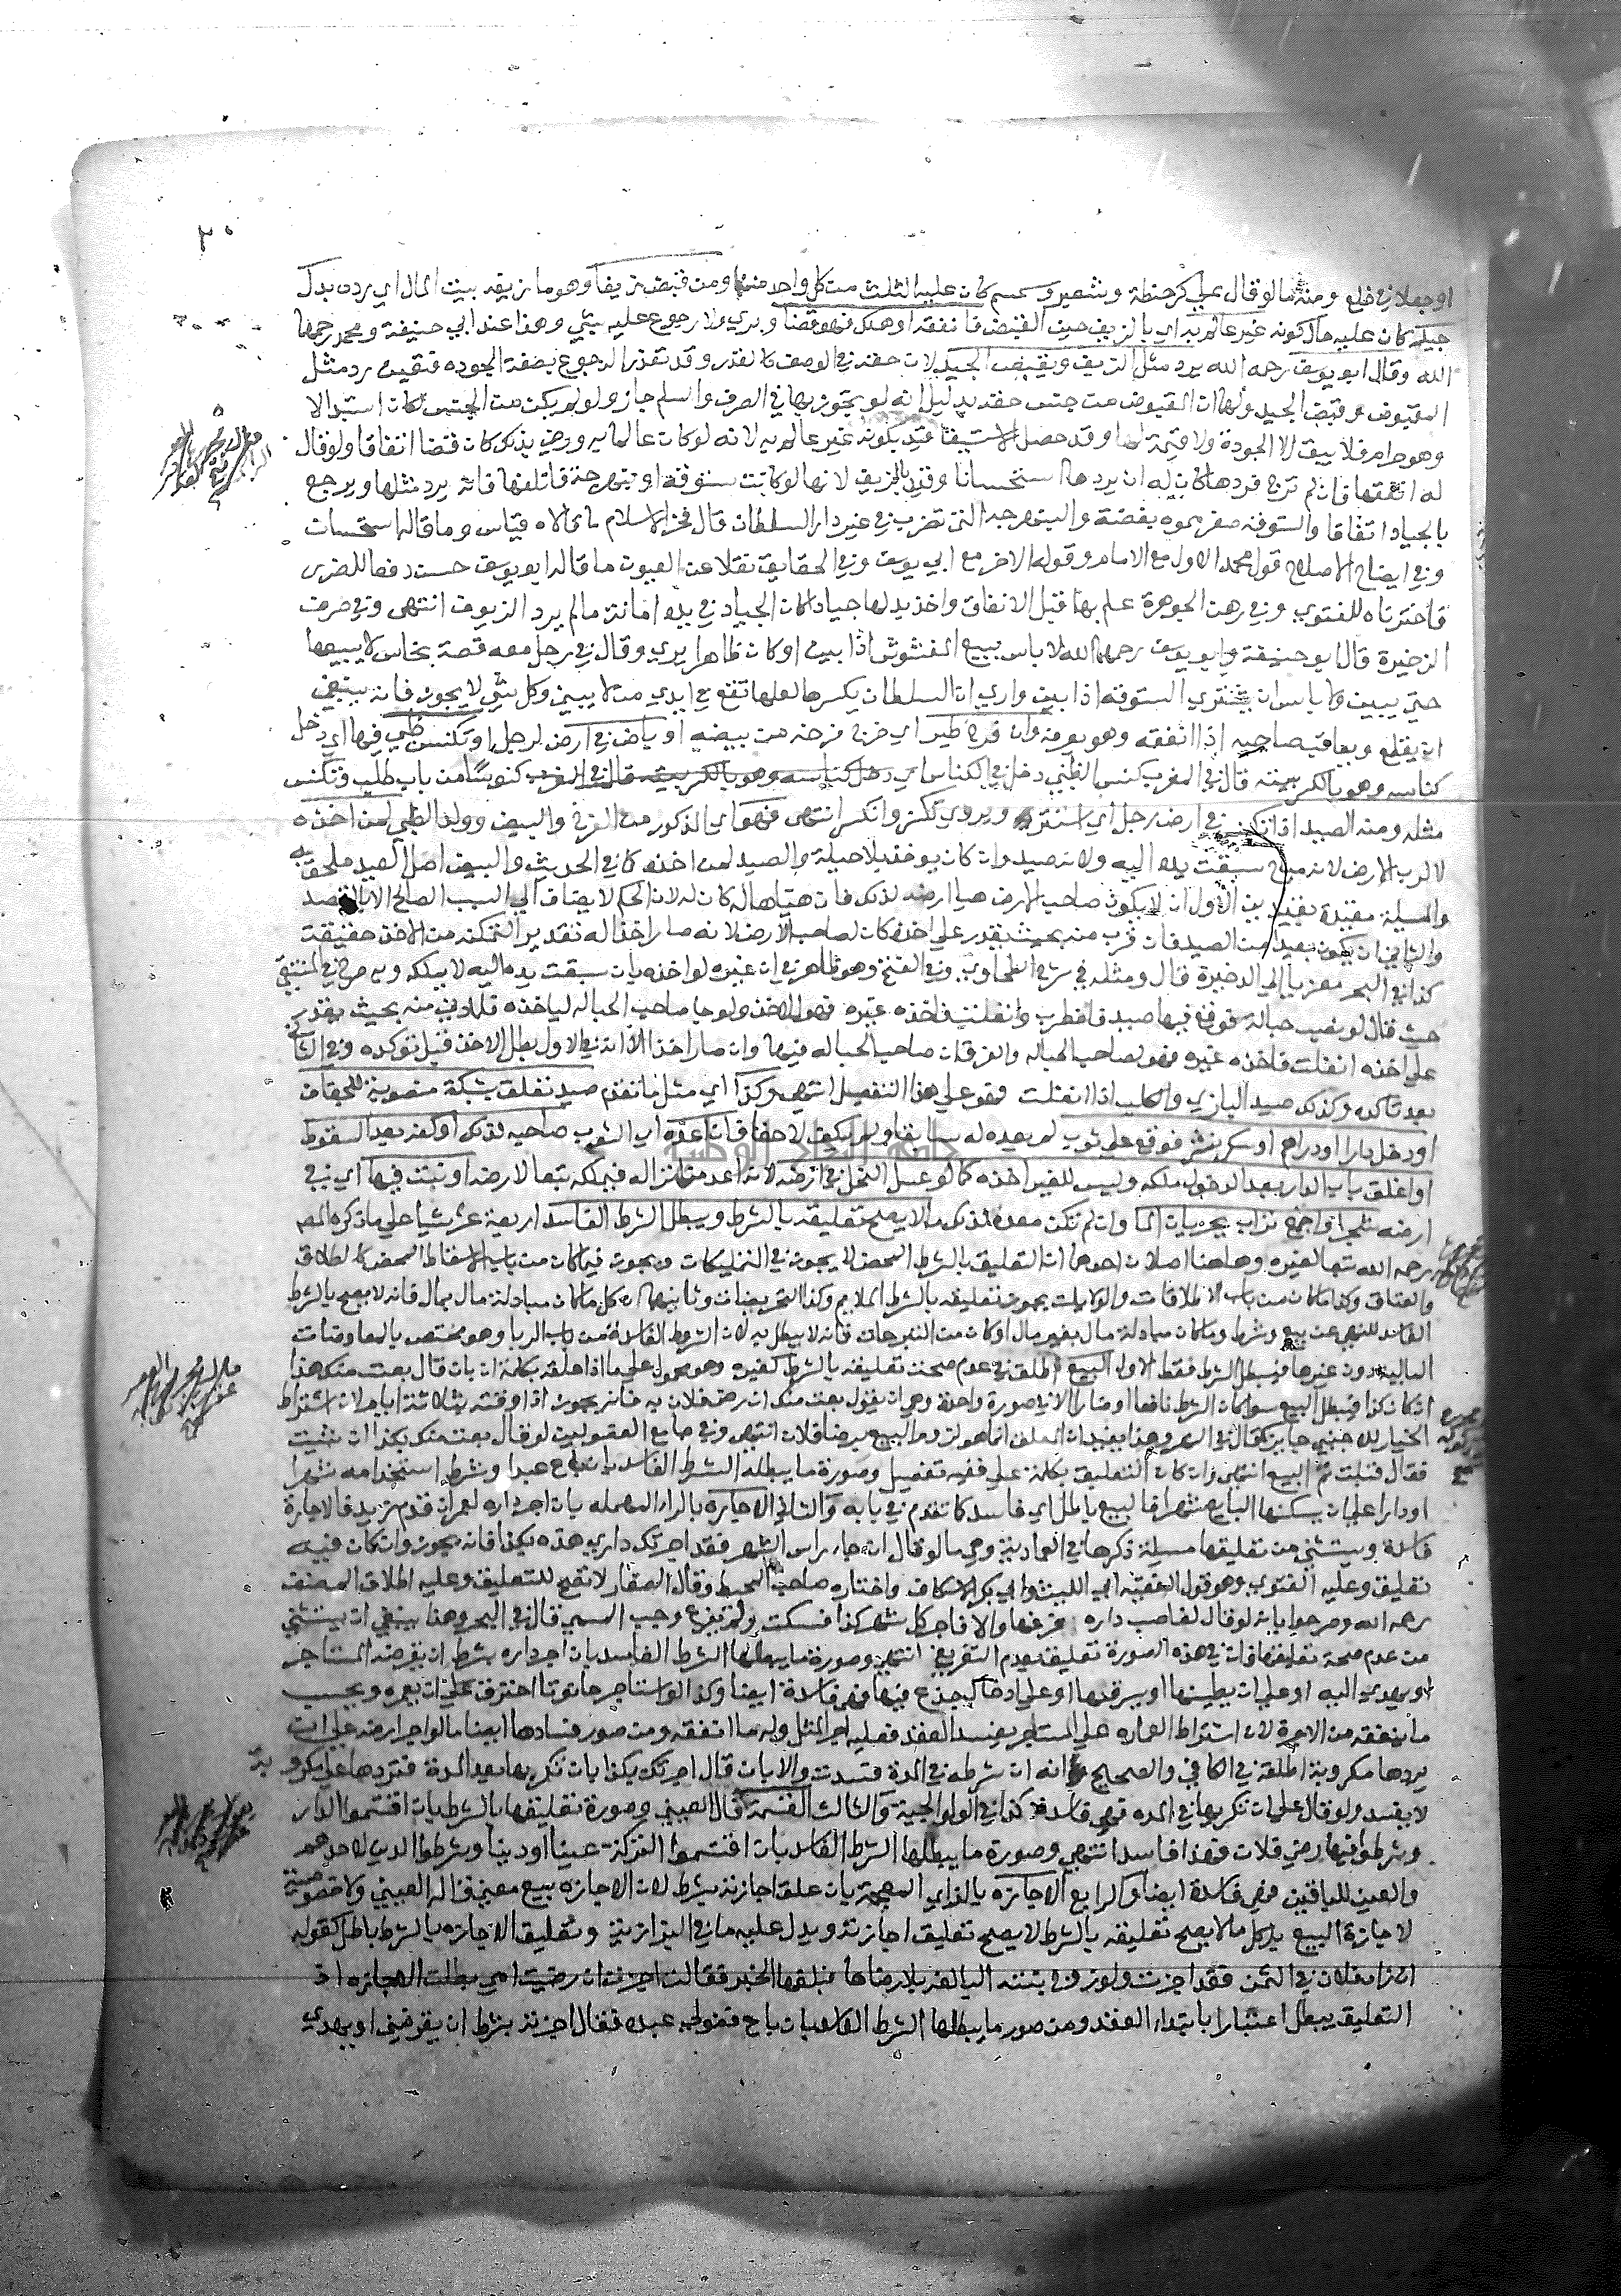 ٣٠
او جعلا في خلع ومنه ما لو قال علي كر حنطة وشعير وسمسم كان عليه الثلث من كل واحد منها ومن قبض زيفا وهو ما زيفه بيت المال اي رده بدل
جيد كان عليه حال كونه غير عالم به اي بالزيف حين القبض فانفقه او هلك فهو قضا وبري ولا رجوع عليه بشي وهذا عند ابي حنيفة ومحمد رحمهما
الله وقال ابو يوسف رحمه الله يرد مثل الزيف ويقبض الجيد لان حقه في الوصف كالقدر وقد تعذر الرجوع بصفة الجوده فتعين رد مثل
المقبوض وقبض الجيد ولهما ان المقبوض من جنس حقه بدليل انه لو تجوز بها في الصرف والسلم جاز ولو لم يكن من الجنس لكان استبدالا
وهو حرام فلا يبق الا الجودة ولا قيمة لها وقد حصل الاستيفا قيد بكونه غير عالم به لانه لو كان عالما به ورضي بذلك كان قضا اتفاقا ولو قال
له انفقها فان لم ترج فردها كان له ان يردها استحسانا وقيد بالزيف لانها لو كانت ستوقة او بنهرجة فاتلفها فانه يرد مثلها ويرجع
بالجياد اتفاقا والستوقه صفر مموه بفضة والبنهرجه التي تضرب في غير دار السلطان قال فخر الاسلام قياس وما قاله استحسان
وفي ايضاح الاصلاح قول محمد الاول مع الامام وقوله الاخر مع ابي يوسف وفي الحقايق نقلا عن العيون ما قاله ابو يوسف حسن دفعا للضرر
فاخترناه للفتوي وفي رهن الجوهرة علم بها قبل الانفاق واخذ بدلها جيادا كان الجياد في يده امانة ما لم يرد الزيوف انتهى وفي صرف
الذخيرة قال ابو حنيفة وابو يوسف رحمهما الله لا باس ببيع المغشوش اذا بين او كان ظاهرا يري وقال في رجل معه فضة بنحاس لا يبيعها
حتي يبين ولا باس ان يشتري الستوقه اذا بين واري ان السلطان يكسرها لعلها تقع في ايدي من لا يبين وكل شي لا يجوز فانه ينبغي
ان يقطع ويعاقب صاحبه اذا انفقه وهو يعرفه وان فرخ طير اي خرج فرخه من بيضه او باض في ارض لرجل او تكنس ظبي فيها اي دخل
كناسه وهو بالكسر بيته قال في المغرب كنس الظبي دخل في الكناس كنوسا من باب طلب وتكنس
مثله ومنه الصيد اذا تكنس في ارض رجل اي استتر ويروي تكسر وانكسر انتهى فهو اي المذكور من الفرخ والبيض وولد الظبي لمن اخذه
لا لرب الارض لانه مباح سبقت يده اليه ولانه صيد وان كان يوخذ بلا حيلة والصيد لمن اخذه كما في الحديث والبيض اصل الصيد ملحق به
والمسيلة مقيدة بقيدين الاول ان لا يكون صاحب الارض هيا ارضه لذلك فان هياها له كان له لان الحكم لا يضاف الي السبب الصالح الا بالقصد
والثاني ان يكون بعيدا من الصيد فان قرب منه بحيث يقدر علي اخذه كان لصاحب الارض لانه صار اخذا له تقدير التمكنه من الاخذ حقيقت
كذا في البحر معزيا الي الذخيرة قال ومثله في شرح الطحاوي وفي الفتح وهو ظاهر في ان غيره لو اخذه بان سبقت يده اليه لا يملكه وبه صرح في المنتقي
حيث قال لو نصب حبالة فوقع فيها صيد فاضطرب وانفلت فاخذه غيره فهو للاخذ ولو جا صاحب الحباله لياخذه فلما دني منه بحيث يقدر
علي اخذه انفلت فاخذه غيره فهو لصاحب الحباله والفرق ان صاحب الحباله فيهما وان صار اخذا الا انه في الاول بطل الاخذ قبل توكده وفي الثاني
بعد تاكده وكذلك صيد البازي والكلب اذا انفلت فهو علي هذا التفصيل انتهى وكذا اي مثل ما تقدم صيد تعلق بشبكة منصوبة للجفاف
او دخل دارا او دراهم او سكر نثر فوقع علي ثوب لم يعده له سابقا ولم يكف لاحقا فان اعده اي الثوب صاحبه لذلك او كفه بعد السقوط
او اغلق باب الدار بعد الدخول ملكه وليس للغير اخذه كما لو عسل النحل في ارضه لانه اعد من انزاله فيملكه تبعا لارضه او نبت فيها اي في
ارضه شجر او اجتمع تراب بجريان الما وان لم تكن معدة لذلك ما لا يصح تعليقه بالشرط ويبطل الشرط الفاسد اربعة عشر شيا علي ما ذكره المص
رحمه الله تبعا لغيره وهاهنا اصلان احدهما ان التعليق بالشرط المحض لا يجوز في التمليكات ويجوز فيما كان من باب الاسقاط المحض كالطلاق
والعتاق وكذا ما كان من باب الاطلاقات والولايات يجوز تعليقه بالشرط الملايم وكذا التحريضات وثانيهما ان كل ما كان مبادلة مال بمال فانه لا يصح بالشرط
الفاسد للنهي عن بيع وشرط وما كان مبادلة مال بغير مال او كان من التبرعات فانه لا يبطل به لان الشروط الفاسدة من باب الربا وهو مختص بالمعاوضات
المالية دون غيرها فيبطل الشرط فقط الاول البيع اطلق في عدم صحت تعليقه بالشرط كغيره وهو محمول علي ما اذا علقه بكلمة ان بان قال بعت منك هذا
ان كان كذا فيبطل البيع سوا كان الشرط نافعا او ضارا الا في صورة واحدة وهي ان يقول بعت منك ان رضي فلان به فانه يجوز اذا وقته بثلاثة ايام لان اشتراط
الخيار للاجنبي جايز قال في البحر وهذا يفيد ان المعلق انما هو لزوم البيع برضا فلان انتهى وفي جامع الفصولين لو قال بعت منك بكذا ان شيت
فقال قبلت تم البيع انتهى وان كان التعليق بكلمة علي ففيه تفصيل وصورة ما يبطله الشرط الفاسد بان باع عبدا وشرط استخدامه شهرا
او دارا علي ان يسكنها البايع شهرا فالبيع باطل اي فاسد كما تقدم في بابه والثاني الاجاره بالراء المهمله بان اجر داره ان قدم زيد فالاجارة
فاسدة ويستثني من تعليقها مسيلة ذكرها في العمادية وهي ما لو قال ان جاء راس الشهر فقد اجرتك داري هذه بكذا فانه يجوز وان كان فيه
تعليق وعليه الفتوي وهو قول الفقيه ابي الليث وابي بكر الاسكاف واختاره صاحب المحيط وقال الصفار لا تصح للتعليق وعليه اطلاق المصنف
رحمه الله وصرحوا بانه لو قال لغاصب داره فرغها والا فاجر كل شهر كذا فسكت ولم يفرغ وجب المسمي قال في البحر وهذا ينبغي ان يستثني
من عدم صحة تعليقها فان في هذه الصورة تعليق بعدم التفريغ انتهى وصورة ما يبطلها الشرط الفاسد بان اجر داره بشرط ان يقرضه المستاجر
او يهدي اليه او علي ان يطينها او يبرقعها او علي ادخال جذع فيها فهي فاسدة ايضا وكذا لو استاجر حانوتا احترق علي ان يعمره ويحسب
ما ينفقه من الاجرة لان اشتراط العماره علي المستاجر يفسد العقد فعليه اجر المثل وله ما انفقه ومن صور فسادها ايضا ما لو اجر ارضه علي ان
يردها مكروبة اطلقه في الكافي والصحيح انه ان شرطه في المدة فسدت والا بان قال اجرتك بكذا بان تكربها بعد المدة فتردها علي مكروبة
لا يفسد ولو قال علي ان تكربها في المده فهي فاسدة كذا في الولوالجية والثالث القسمة قال العيني وصورة تعليقها بالشرط بان اقتسموا الدار
وشرطوا فيها رضي فلان فهذا فاسد انتهى وصورة ما يبطلها الشرط الفاسد بان اقتسموا التركة عينا او دينا وشرطوا الدين لاحدهم
والعين للباقين فهي فاسدة ايضا والرابع الاجازه بالزاي المعجمة بان علق اجازته بشرط لان الاجازه بيع معني قاله العيني ولا خصوصية
لاجازة البيع بل كل ما لا يصح تعليقه بالشرط لا يصح تعليق اجازته ويدل عليه ما في البزازية وتعليق الاجازه بالشرط باطل كقوله
ان زاد فلان في الثمن فقد اجزت ولو زوج بنته البالغه بلا رضاها فبلغها الخبر فقالت اجزت ان رضيت امي بطلت الاجازه اذ
التعليق يبطل اعتبارا بابتداء العقد ومن صور ما يبطلها الشرط الفاسد بان باع فضولي عبده فقال اجزته بشرط ان يقرضني او يهدي